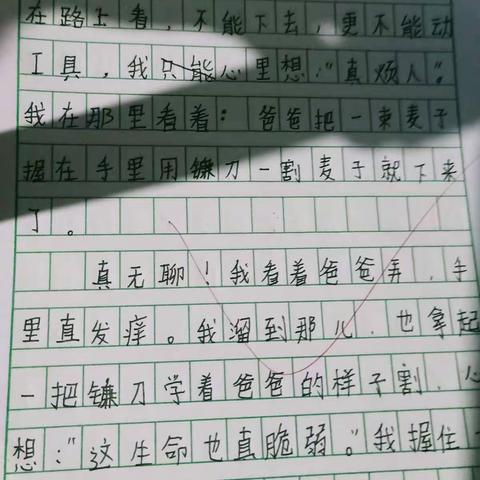 在路上看，不能下去，更不能动
工具，我只能心里想："真烦人"。
我在那里看着：爸爸把一束麦子
握在手里用镰刀一割麦子就下来
了。
真无聊！我看着爸爸弄，手
里直发痒。我溜到那儿，也拿起
一把镰刀学着爸爸的样子割，心
想："这生命也真脆弱。"我握住